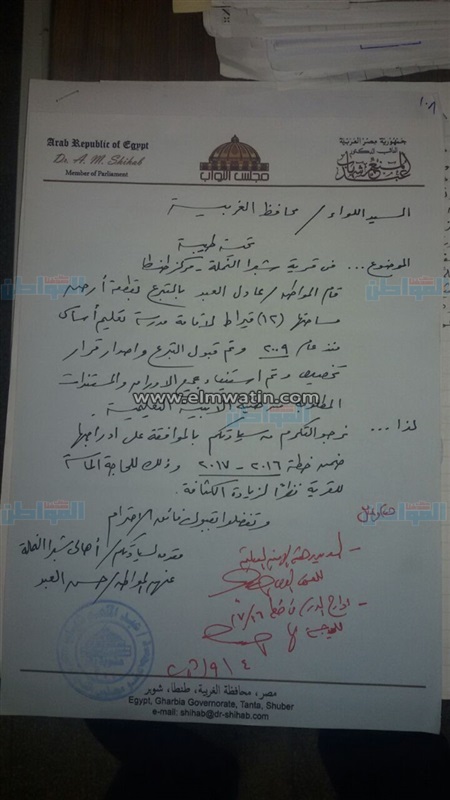 ١٠٨
Arab Republic of Egypt
Dr. A. M. Shihab
Member of Parliament
مجلس النواب
جمهورية مصر العربية
السيد اللواء / محافظ الغربية
تحية طيبة
الموضوع ... فى قرية شبرا النملة - مركز طنطا
قام المواطن / عادل العبد بالتبرع بقطعة أرض
مساحتها (١٢) قيراط لإقامة مدرسة تعليم أساسى
منذ عام ٢٠٠٩ وتم قبول التبرع وإصدار قرار
تخصيص وتم استيفاء جميع الأوراق والمستندات
المطلوبة من هيئة الأبنية التعليمية .
www.elmwatin.com
لذا ... نرجو التكرم من سيادتكم بالموافقة على ادراجها
ضمن خطة ٢٠١٦ - ٢٠١٧ وذلك للحاجة الماسة
للقرية نظراً لزيادة الكثافة .
وتفضلوا بقبول فائق الاحترام
مقدمه لسيادتكم / أهالى شبرا النملة
عنهم المواطن / حسن العبد
مصر، محافظة الغربية، طنطا، شوبر
Egypt, Gharbia Governorate, Tanta, Shuber
e-mail: shihab@dr-shihab.com